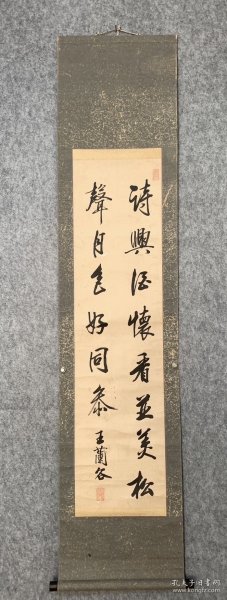 詩興酒懷看並美松
聲月色好同參
王蘭谷
孔夫子旧书网
www.kongfz.com